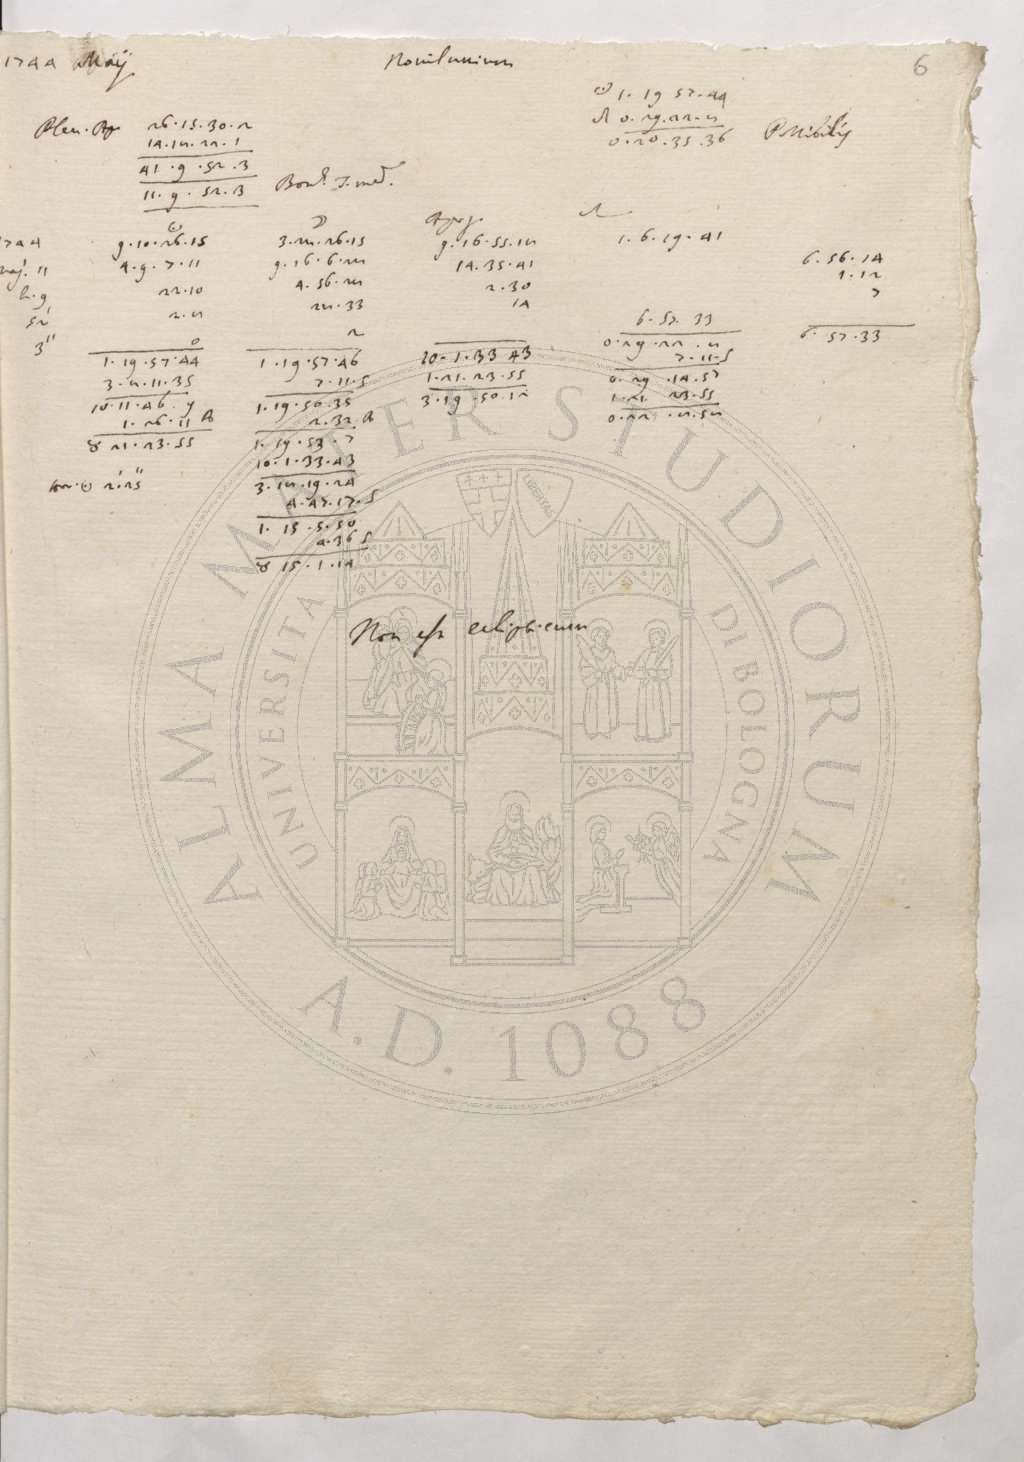 1744 Maij Novilunium 6
☉ 1. 19 57. 44
Plen. Ap. 26. 15. 30. 2 ☊ 0. 29. 22. 8 Possibilis
14. 18. 22. 1 0. 20. 35. 36
41. 9. 52. 3
11. 9. 52. 3
☉ ☽ Apog. ☊
1744 9. 10. 26. 15 3. 28. 26. 15 9. 16. 55. 18 1. 6. 19. 41
Maj. 11 4. 9. 7. 11 9. 16. 6. 28 14. 35. 41 6. 56. 14
h. 9 22. 10 4. 56. 28 2. 30 1. 12
52' 2. 8 28. 33 14 7
3'' 0 2 6. 57. 33 6. 57. 33
1. 19. 57. 44 1. 19. 57. 46 10. 1. 33. 43 0. 29. 22. 8
3. 8. 11. 35 7. 11. S 1. 21. 23. 55 7. 11. S
10. 11. 46. 9 1. 19. 50. 35 3. 19. 50. 12 0. 29. 14. 57
1. 26. 11 A 2. 32 A 1. 21. 23. 55
♉ 21. 23. 55 1. 19. 53. 7 0. 22. 8. 58
10. 1. 33. 43
☉ 2' 25'' 3. 18. 19. 24
4. 47. 17. S
1. 15. 5. 50
4. 36 S
♉ 15. 1. 14
Non est eclipticum
ALMA MATER STUDIORUM
UNIVERSITA DI BOLOGNA
LIBERTAS
A.D. 1088